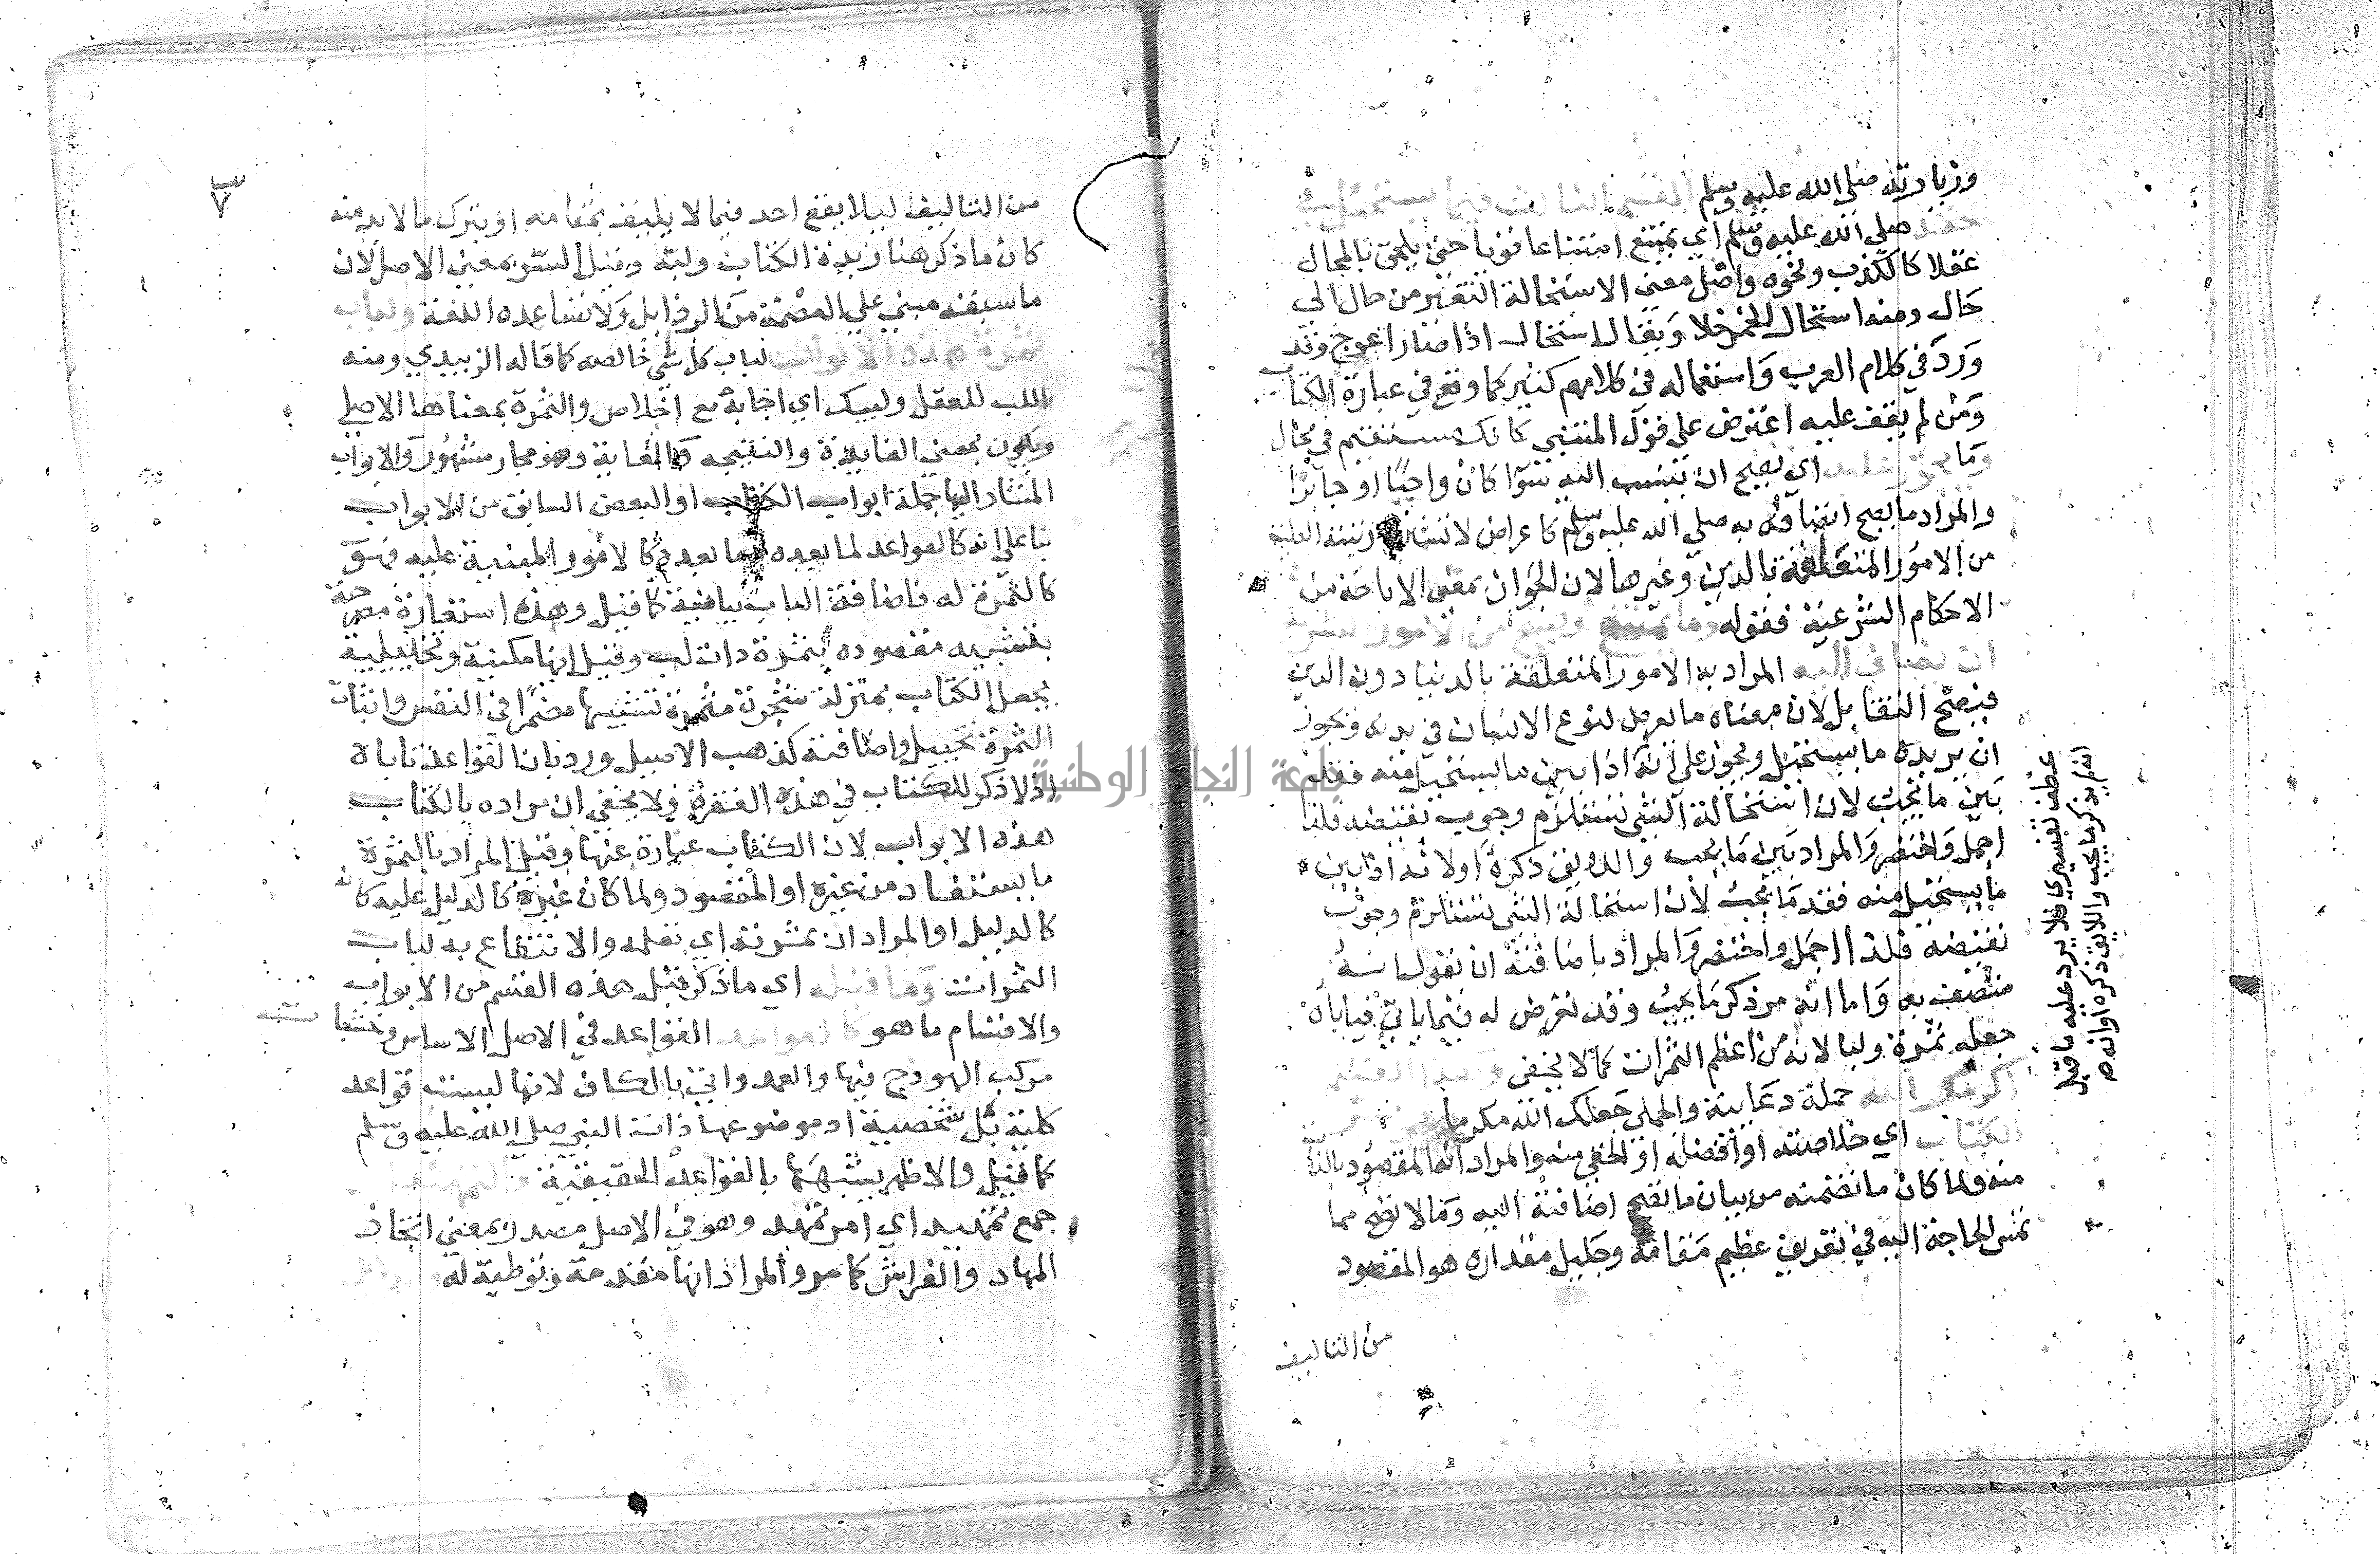 وزيارته صلى الله عليه وسلم القسم الثالث فيما يستحيل في
حقه صلى الله عليه وسلم أي يمتنع امتناعا قويا حتى يلحق بالمحال
عقلا كالكذب ونحوه واصل معنى الاستحالة التغير من حال الى
حال ومنه استحال الخمر خلا ويقال استحال اذا صار اعوج وقد
ورد في كلام العرب واستعماله في كلامهم كثير كما وقع في عبارة الكتاب
ومن لم يقف عليه اعترض على قول المتنبي كانك مستقيم في محال
وما يجوز عليه اي يصح ان ينسب اليه سوا كان واجبا او جايزا
والمراد ما يصح اتصافه به صلى الله عليه وسلم كاعراض لا تشين رتبته العلية
من الامور المتعلقة بالدين وغيرها لان الجواز بمعنى الاباحة من
الاحكام الشرعية فقوله وما يمتنع ويصح من الامور البشرية
ان يضاف اليه المراد به الامور المتعلقة بالدنيا دون الدين
فيصح التقابل لان معناه ما يعرض لنوع الانسان في بدنه ويجوز
ان يريد ما يستحيل ويجوز على انه اذا بين ما يستحيل منه فقد
بين ما يجب لان استحالة الشي تستلزم وجوب نقيضه فلذا
اجمل واختصر والمراد بين ما يجب واللايق ذكره اولا لانه اذا بين
ما يستحيل منه فقد ما يجب لان استحالة الشي يستلزم وجوب
نقيضه فلذا اجمل واختصر والمراد باضافته ان نقول انه
متصف به واما انه مر ذكر ما يجب وقد تعرض له فيما ياتي فياباه
جعله ثمرة ولبا لانه من اعظم الثمرات كما لا يخفى وهذا القسم
اكرمك الله جملة دعايية والحملى جعلك الله مكرما
الكتاب اي خلاصته او افضله او الخفي منه والمراد انه المقصود بالذات
منه ولما كان ما تضمنه من بيان ما تصح اضافته اليه وما لا تصح مما
تمس الحاجة اليه في تعريف عظيم مقامه وجليل مقداره هو المقصود
من التاليف
عطف تفسيري فلا يرد عليه ما قيل
انه لم يذكر ما يجب واللايق ذكره اولا لانه
٧
من التاليف ليلا يقع احد فيما لا يليق بمقامه او يترك ما لا بد منه
كان ما ذكر هنا زبدة الكتاب ولبه وقيل السر بمعنى الاصل لان
ما سبقه مبني على العصمة من الرذايل ولا تساعده اللغة ولباب
ثمرة هذه الابواب لباب كل شي خالصه كما قاله الزبيدي ومنه
اللب للعقل ولبيك اي اجابة مع اخلاص والثمرة بمعناها الاصلي
ويكون بمعنى الفايدة والنتيجه والغاية وهو مجاز مشهور والابواب
المشار اليها جملة ابواب الكتاب او البعض السابق من الابواب
بنا على انه كالقواعد لما بعده فما بعده كالامور المبنية عليه فهو
كالثمرة له فاضافة الباب بيانية كما قيل وهذه استعارة مصرحة
بتشبيه مقصوده بثمرة ذات لب وقيل انها مكنية وتخييلية
بجعل الكتاب بمنزلة شجرة مثمرة تشبيها مضمرا في النفس واثبات
الثمرة تخييل واضافته كذهب الاصيل ورد بان القواعد تاباه
اذ لا ذكر للكتاب في هذه الفقرة ولا يخفى ان مراده بالكتاب
هذه الابواب لان الكتاب عبارة عنها وقيل المراد بالثمرة
ما يستفاد من غيره او المقصود ولما كان غيره كالدليل عليه كانه
كالدليل او المراد ان ثمرته اي تعلمه والانتفاع به لباب
الثمرات وما قبله اي ما ذكر قبل هذه القسم من الابواب
والاقسام ما هو كالقواعد القواعد في الاصل الاساس وخشبات
مركب الهودج فيها والعمد واتى بالكاف لانها ليست قواعد
كلية بل شخصية اذ موضوعها ذات النبي صلى الله عليه وسلم
كما قيل والاظهر يشبهها بالقواعد الحقيقية والتمهيدات
جمع تمهيد اي امر تمهد وهو في الاصل مصدر بمعنى اتخاذ
المهاد والفراش كما مر والمراد انها مقدمة وتوطية له
جامعة النجاح الوطنية